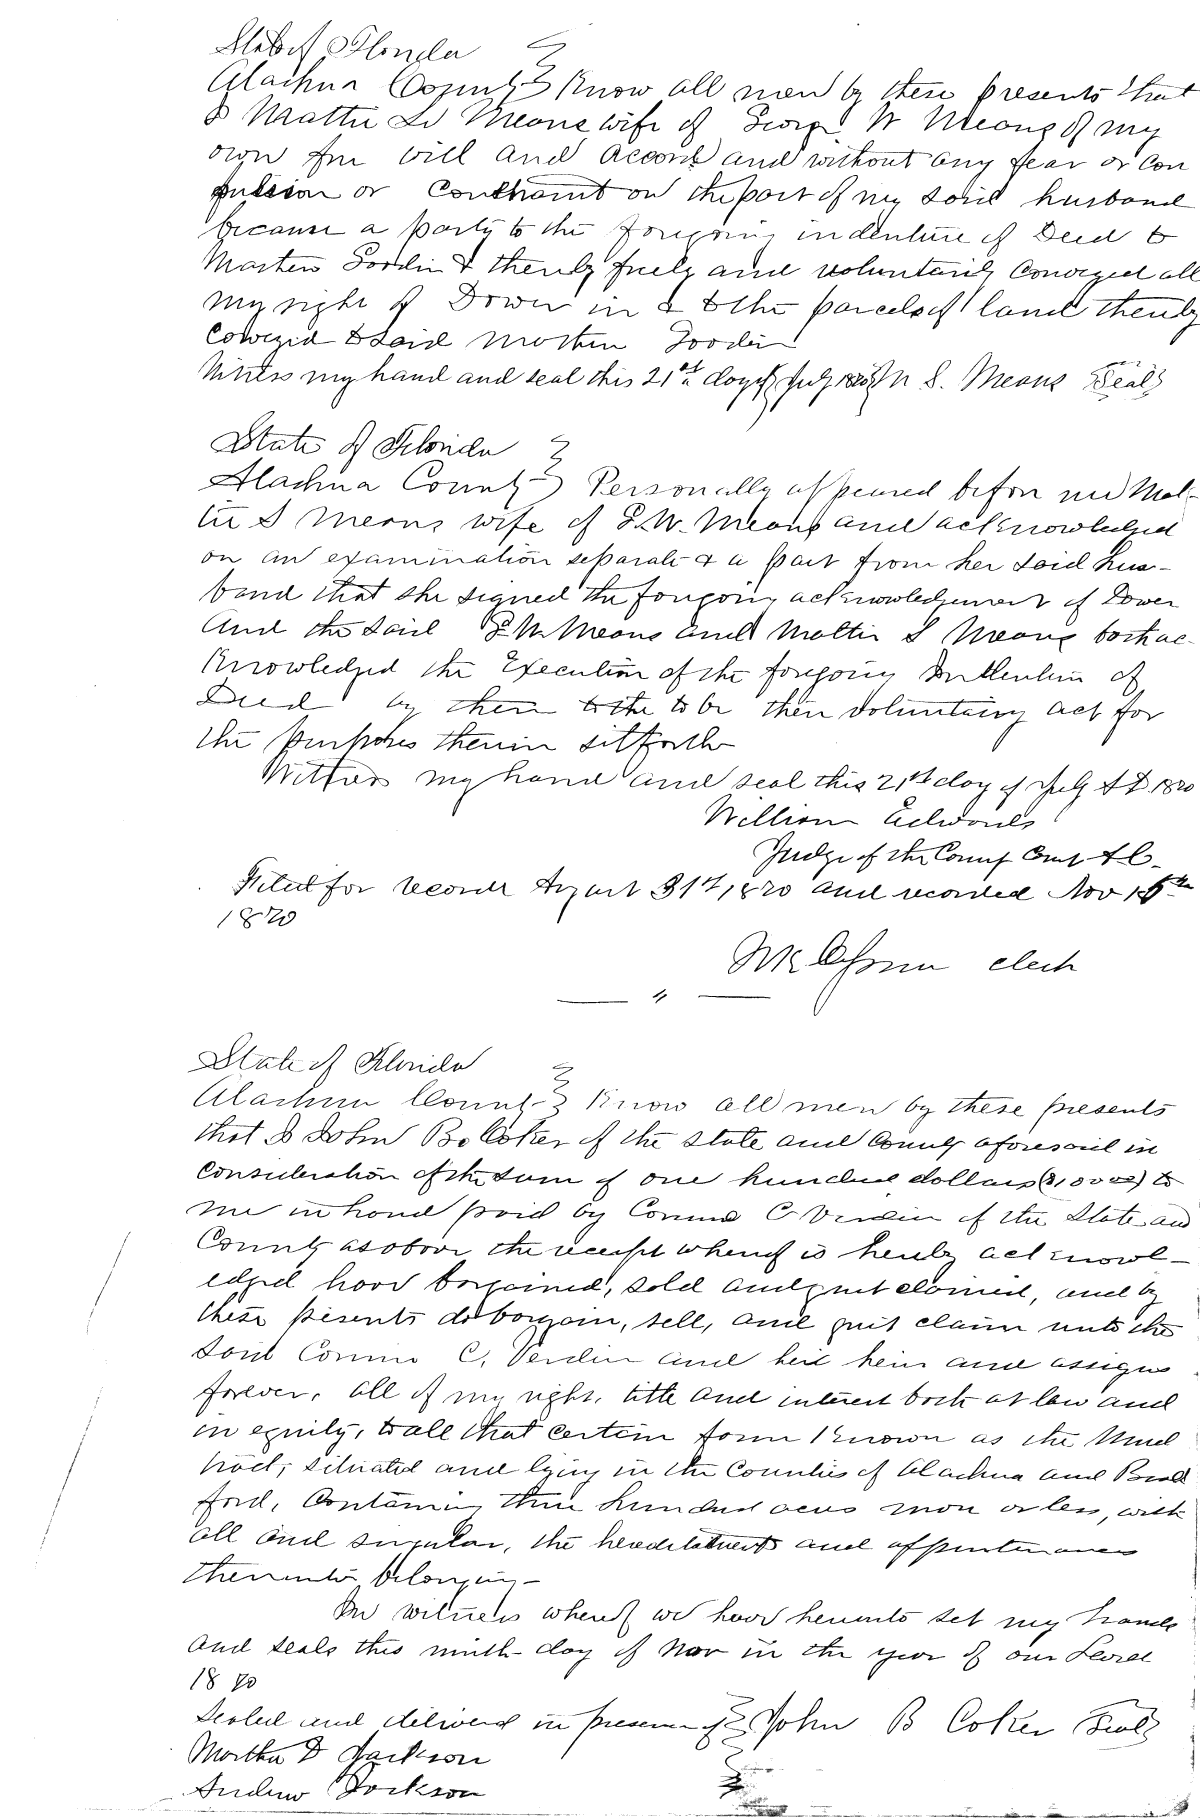 State of Florida
Alachua County Know all men by these presents that
I Mattie S Means wife of George W Means of my
own free will and accord and without any fear or con
pulsion or Constraint on the part of my said husband
became a party to the foregoing indenture of Deed to
Masten Gordin & thereby freely and voluntarily Conveyed all
my right of Dower in & to the parcels of land thereby
Coveyed to said Mosten Gordin
Witness my hand and seal this 21st day of July 1870 M S. Means Seal
State of Florida
Alachua County Personally appeared before me Mat-
tie S Means wife of G.W. Means and acknowledged
on an examination separate & a part from her said hus-
band that she signed the foregoing acknowledgement of Dower
And the said G W Means and Mattie S Means both ac-
knowledged the Execution of the foregoing Indenture of
Deed by them to be their voluntary act for
the purposes therein sit forth
Witness my hand and seal this 21st day of July A D 1870
William Edwards
Judge of the County Court A C.
Filed for record August 31st, 1870 and recorded Nov 15th
1870
clerk
State of Florida
Alachua County Know all men by these presents
that I John B. Coker of the State and County aforesaid in
Consideration of the sum of one hundred dollars ($100 00) to
me in hand paid by C Verdin of the State and
County as above the receipt whereof is hereby acknowl-
edged have bargained, sold and quit claimed, and by
these presents do bargain, sell, and quit claim unto the
said C. Verdin and heirs and assigns
forever, all of my right, title and interest both at law and
in equity, to all that certain farm Known as the
tract, situated and lying in the Counties of Alachua and Brad
ford, Containing three hundred acres more or less, with
all and singular, the hereditaments and appurtenances
thereunto belonging-
In witness whereof we have hereunto set my hands
and seals this ninth day of Nov in the year of our Lord
1870
Sealed and delivered in presence of John B Coker Seal
Martha D Jackson
Andrew Jackson